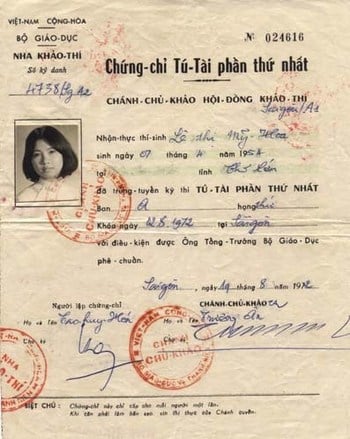 VIỆT-NAM CỘNG-HÒA
BỘ GIÁO-DỤC
NHA KHẢO-THÍ
Số ký danh
4738
№ 024616
Chứng-chỉ Tú-Tài phần thứ nhất
CHÁNH-CHỦ-KHẢO HỘI-ĐỒNG KHẢO-THÍ
Saigon/A1
Nhận-thực thí-sinh Lê thị Mỹ Hoa
sinh ngày 07 tháng 4 năm 1954
tại tỉnh
đã trúng-tuyển kỳ thi TÚ-TÀI PHẦN THỨ NHẤT
Ban A hạng thứ
Khóa ngày 12.8.1972 tại Saigon
với điều-kiện được Ông Tổng-Trưởng Bộ Giáo-Dục
phê-chuẩn.
Saigon, ngày 19 tháng 8 năm 1972
Người lập chứng-chỉ
CHÁNH-CHỦ-KHẢO
Họ và Tên
Họ và Tên Trương An
VIỆT-NAM CỘNG
CHÁNH
CHỦ-KHẢO
NHA
KHẢO-THÍ
BIỆT CHÚ : Chứng-chỉ này chỉ cấp cho mỗi người một lần.
Khi cần phải làm bản sao xin thị thực của Chánh quyền.